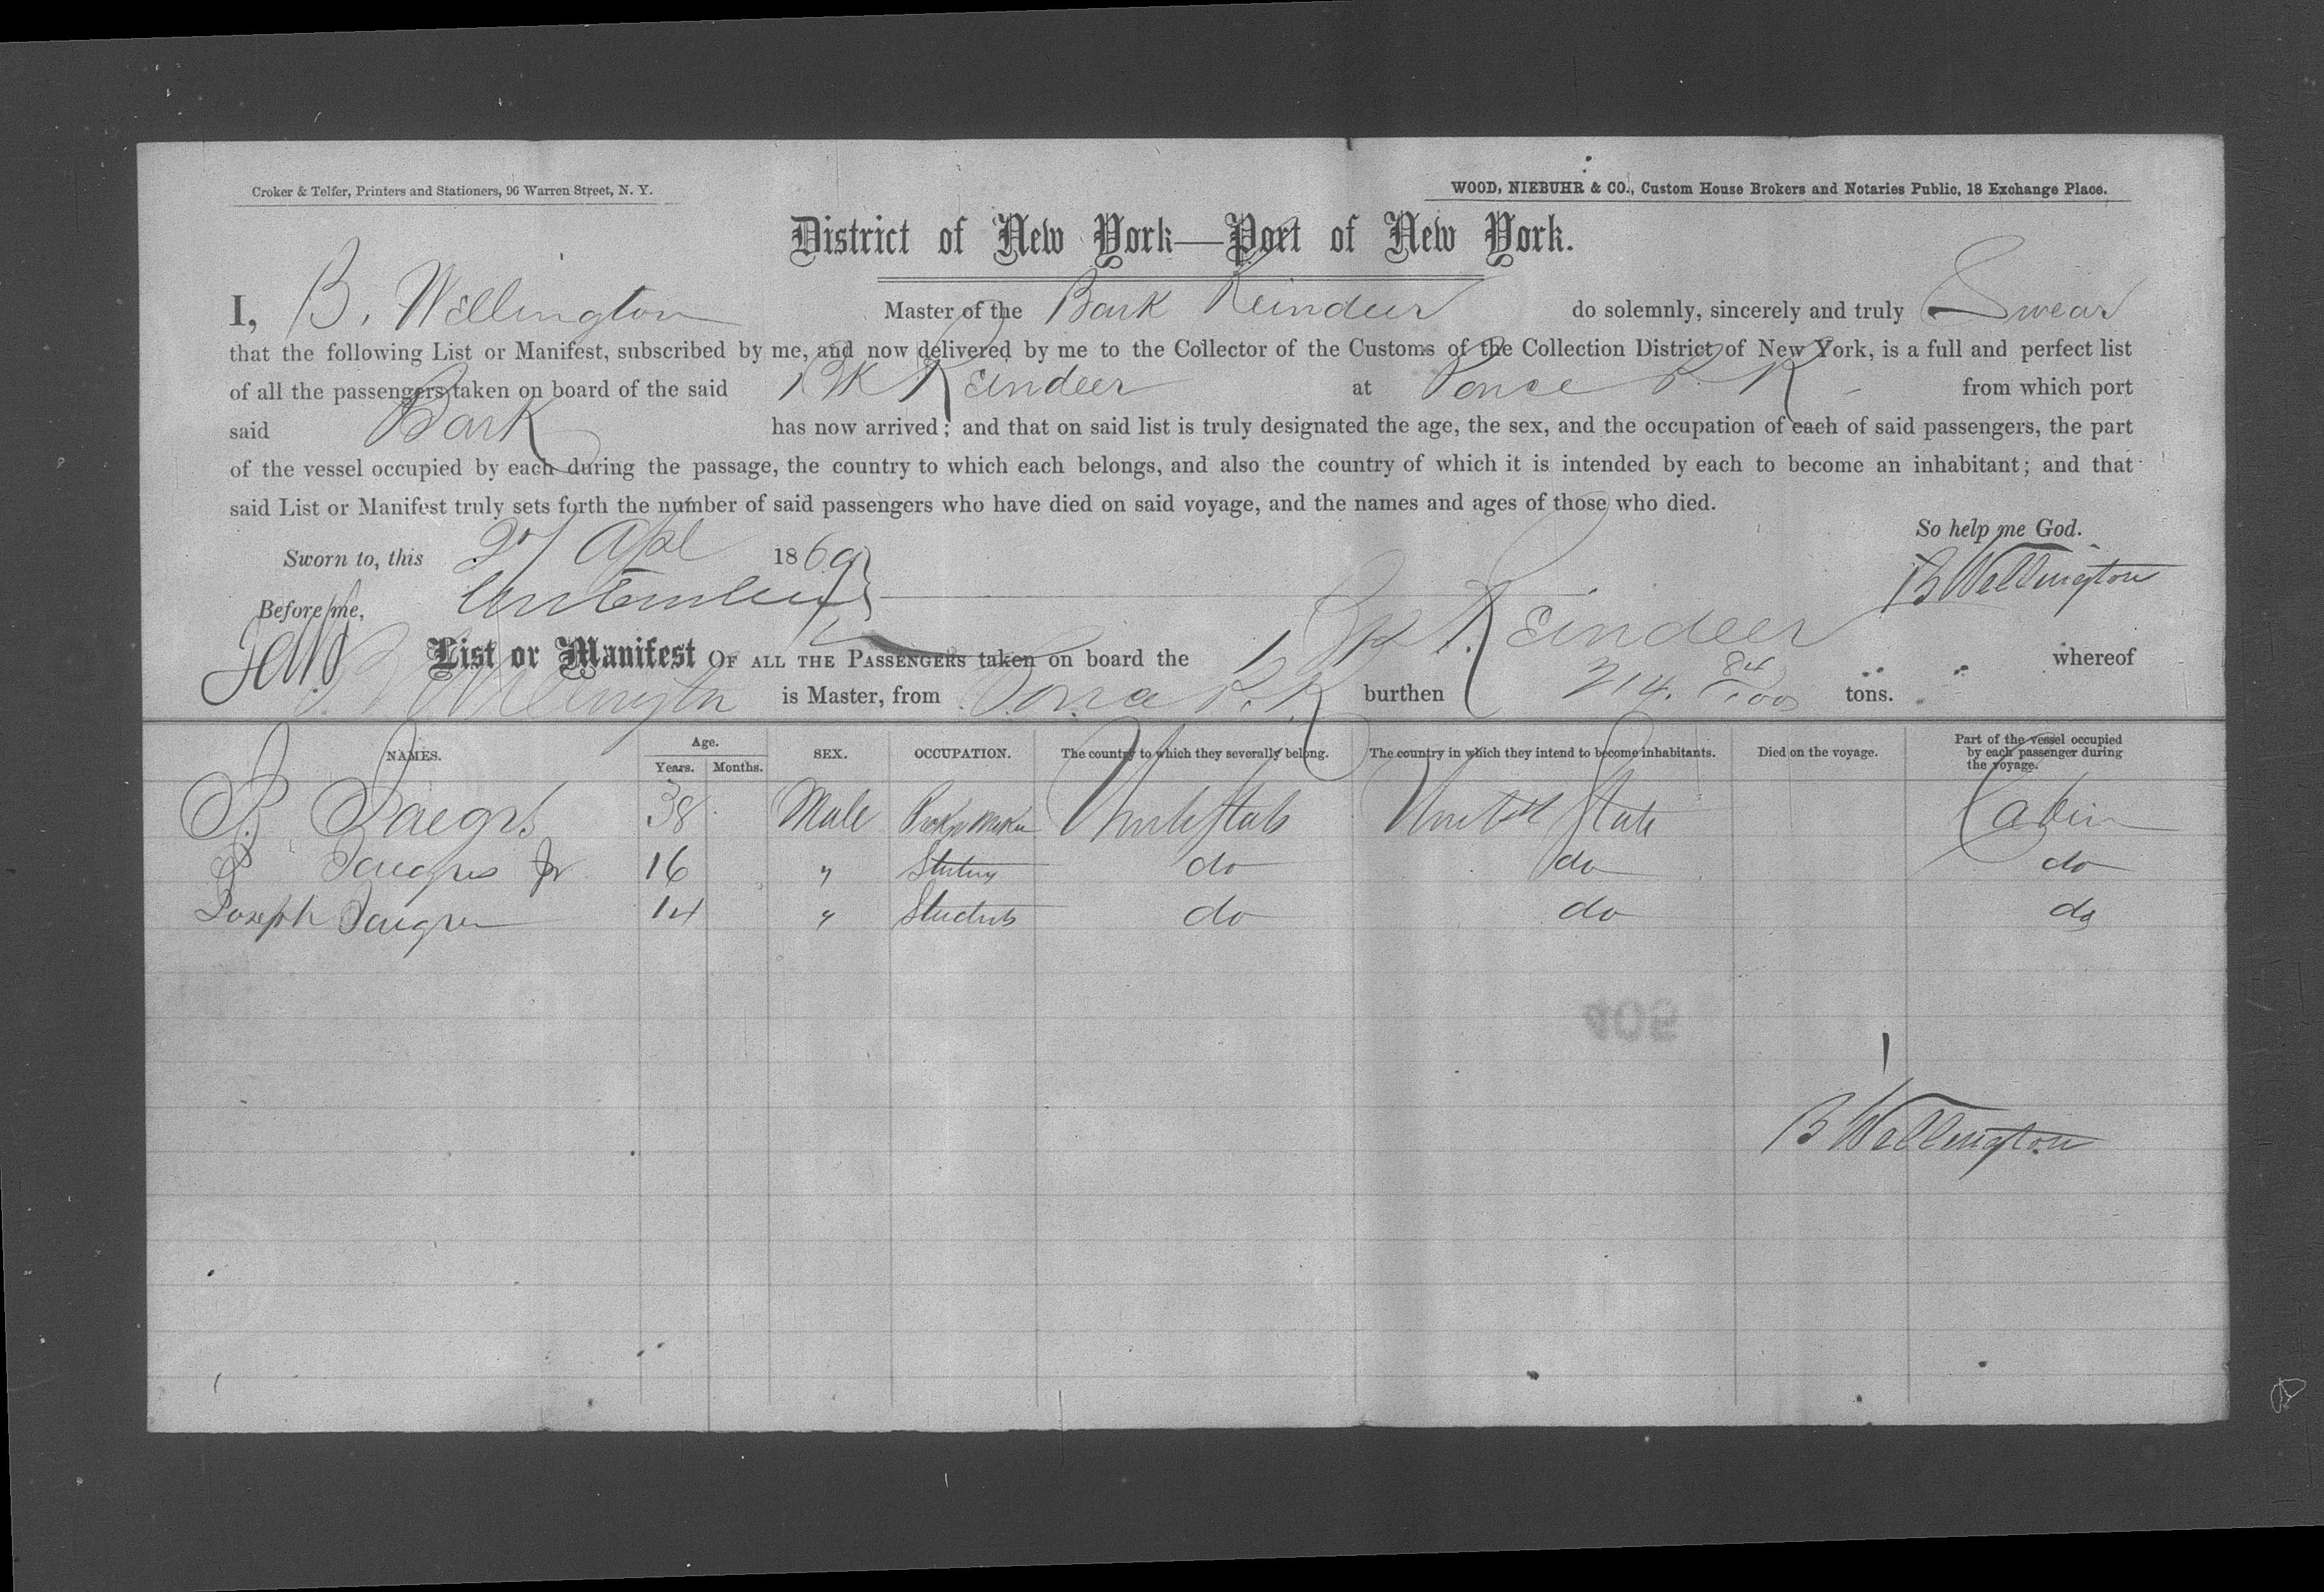 Croker & Telfer, Printers and Stationers, 96 Warren Street, N. Y.
WOOD, NIEBUHR & CO., Custom House Brokers and Notaries Public, 18 Exchange Place.
District of New York—Port of New York.
I, B. Wellington Master of the Bark Reindeer do solemnly, sincerely and truly Swear
that the following List or Manifest, subscribed by me, and now delivered by me to the Collector of the Customs of the Collection District of New York, is a full and perfect list
of all the passengers taken on board of the said Bk Reindeer at Ponce P. R from which port
said Bark has now arrived; and that on said list is truly designated the age, the sex, and the occupation of each of said passengers, the part
of the vessel occupied by each during the passage, the country to which each belongs, and also the country of which it is intended by each to become an inhabitant; and that
said List or Manifest truly sets forth the number of said passengers who have died on said voyage, and the names and ages of those who died.
So help me God.
Sworn to, this 27 Apl 1869
B Wellington
Before me,
List or Manifest OF ALL THE PASSENGERS taken on board the Reindeer whereof
B Wellington is Master, from P. R burthen 214. 84/100 tons.
NAMES. Age. Years. Months. SEX. OCCUPATION. The country to which they severally belong. The country in which they intend to become inhabitants. Died on the voyage. Part of the vessel occupied by each passenger during the voyage.
38 Male United States United State Cabin
Jr 16 " do do do
Joseph 14 " Students do do do
405
B Wellington